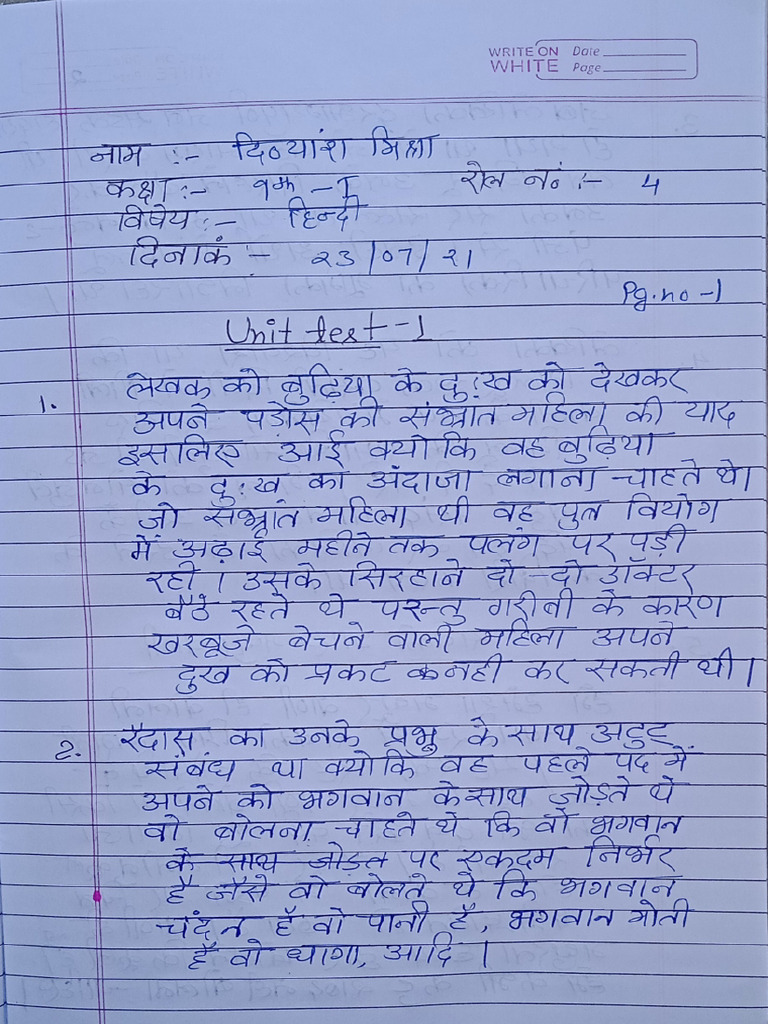 WRITE ON
WHITE
Date
Page
नाम :- दिव्यांश मिश्रा
कक्षा :- ९ - I रोल नं :- 4
विषेय :- हिन्दी
दिनाकं :- २3/07/२१
Pg.no -1
Unit test -1
1. लेखक को बुढ़िया के दु:ख को देखकर
अपने पड़ोस की संभ्रांत महिला की याद
इसलिए आई क्योकि वह बुढ़िया
के दु:ख का अंदाजा लगाना चाहते थे।
जो संभ्रांत महिला थी वह पुत्र वियोग
में अढ़ाई महीने तक पलंग पर पड़ी
रही । उसके सिरहाने दो - दो डॉक्टर
बैठे रहते थे परन्तु गरीबी के कारण
खरबूजे बेचने वाली महिला अपने
दुख को प्रकट नही कर सकती थी ।
2. रैदास का उनके प्रभू के साथ अटुट
संबंध था क्योकि वह पहले पद में
अपने को भगवान के साथ जोड़ते थे
वो बोलना चाहते थे कि वो भगवान
के साथ जोड़त पर एकदम निर्भर
है जैसे वो बोलते थे कि भगवान
चंदन है वो पानी है, भगवान मोती
है वो धागा, आदि ।